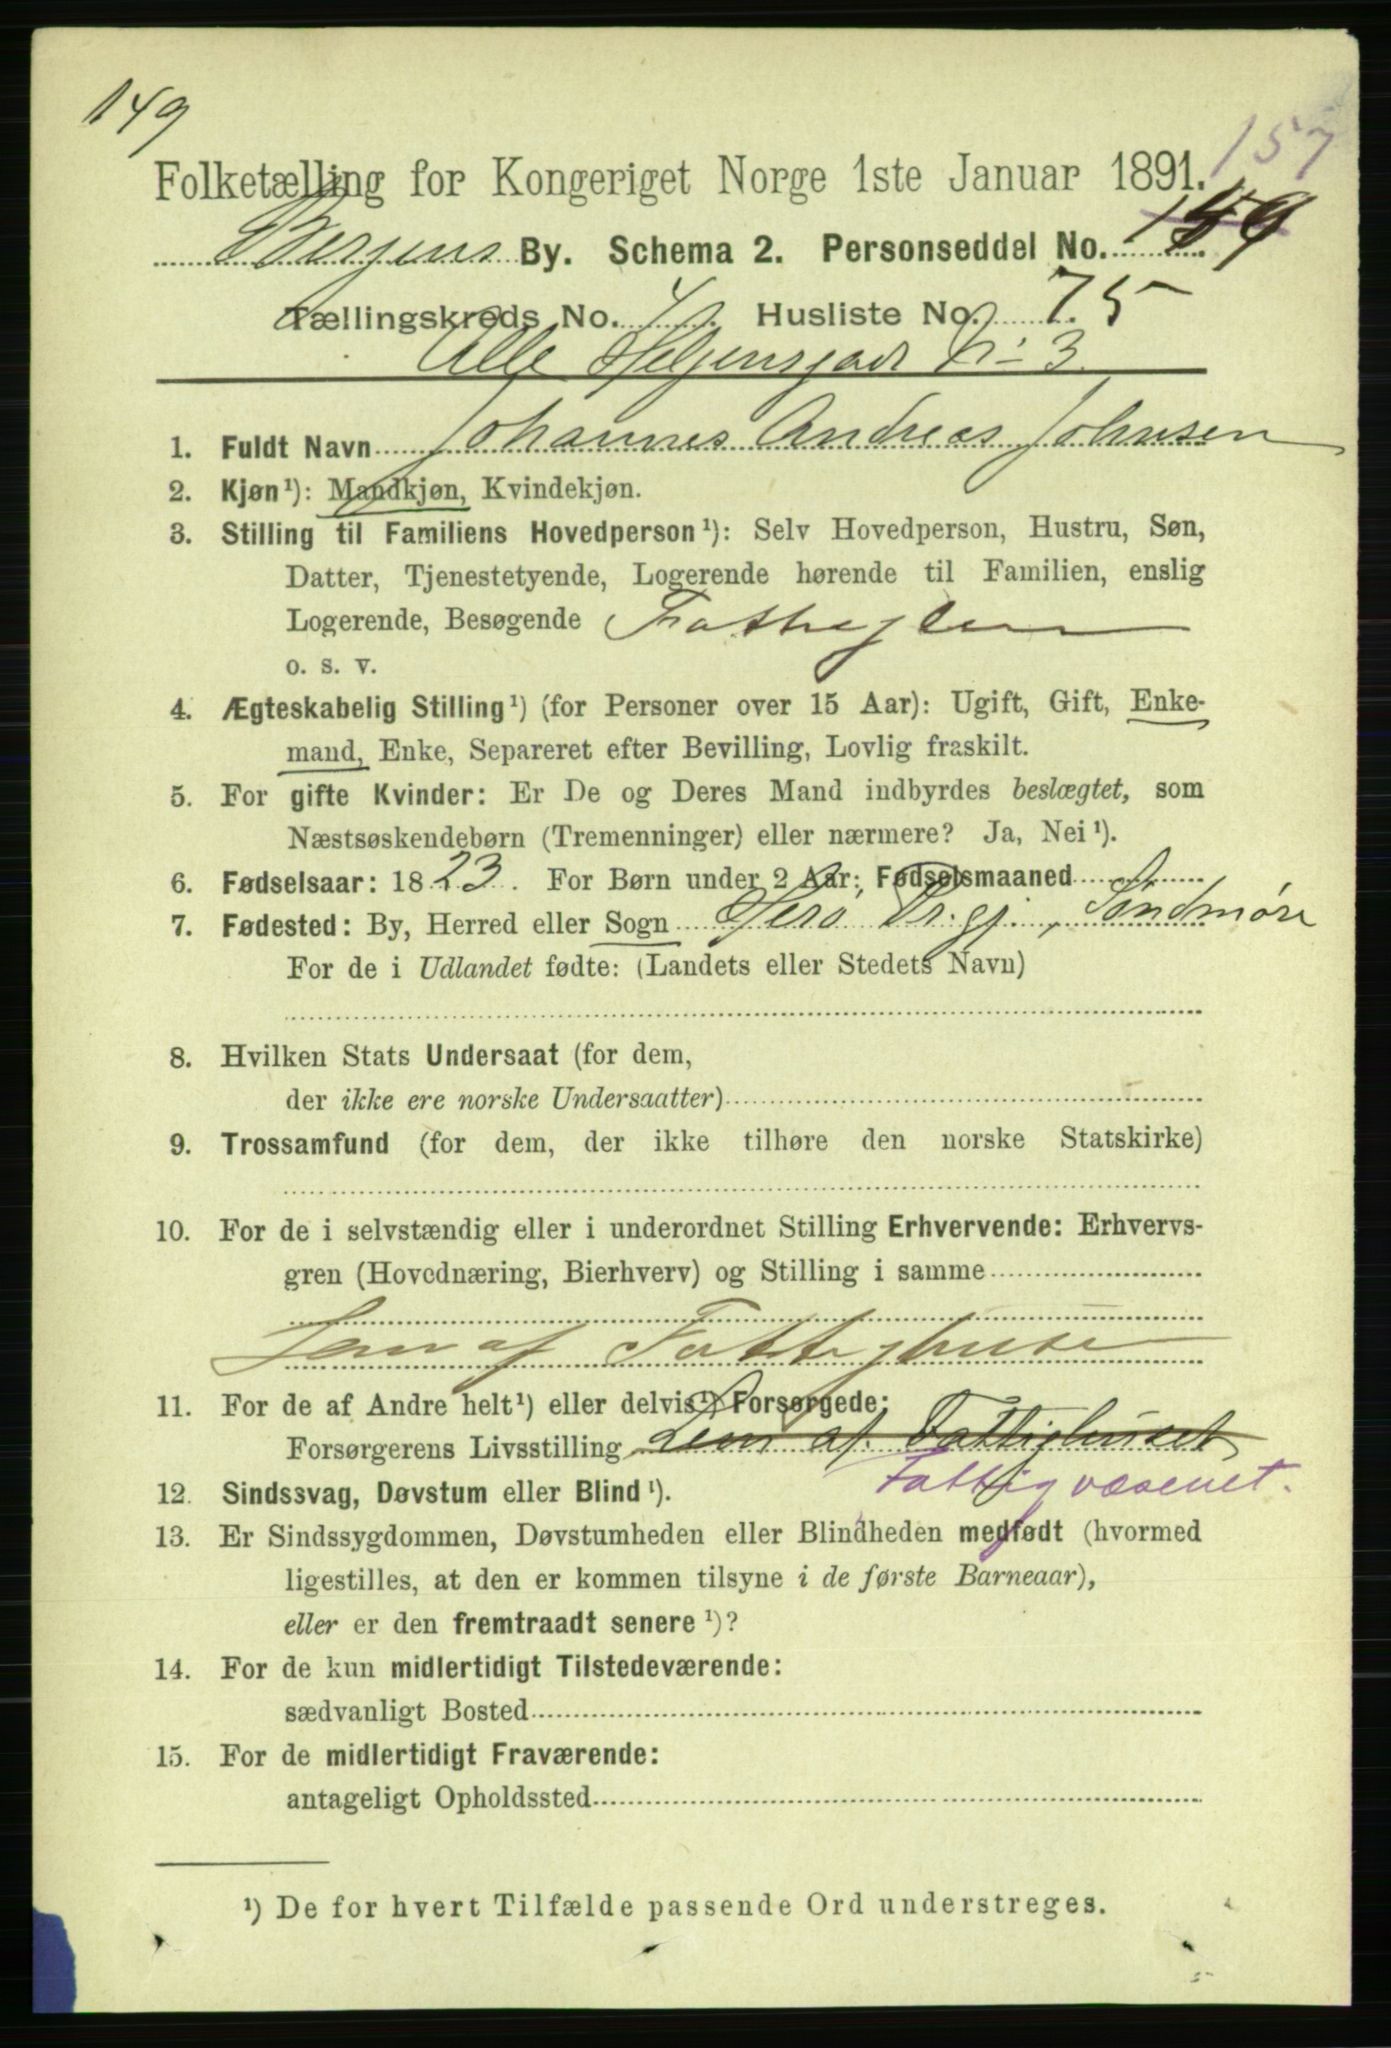 149
157
Folketælling for Kongeriget Norge 1ste Januar 1891.
Bergens By. Schema 2. Personseddel No. 149
Tællingskreds No. 4. Husliste No. 75
Alle Helgensgade No 3.
1. Fuldt Navn Johannes Andreas Johnsen
2. Kjøn¹): Mandkjøn, Kvindekjøn.
3. Stilling til Familiens Hovedperson¹): Selv Hovedperson, Hustru, Søn,
Datter, Tjenestetyende, Logerende hørende til Familien, enslig
Logerende, Besøgende Fattiglem
o. s. v.
4. Ægteskabelig Stilling¹) (for Personer over 15 Aar): Ugift, Gift, Enke-
mand, Enke, Separeret efter Bevilling, Lovlig fraskilt.
5. For gifte Kvinder: Er De og Deres Mand indbyrdes beslægtet, som
Næstsøskendebørn (Tremenninger) eller nærmere? Ja, Nei¹).
6. Fødselsaar: 1823. For Børn under 2 Aar: Fødselsmaaned
7. Fødested: By, Herred eller Sogn Herø Prgj., Søndmøre
For de i Udlandet fødte: (Landets eller Stedets Navn)
8. Hvilken Stats Undersaat (for dem,
der ikke ere norske Undersaatter)
9. Trossamfund (for dem, der ikke tilhøre den norske Statskirke)
10. For de i selvstændig eller i underordnet Stilling Erhvervende: Erhvervs-
gren (Hovednæring, Bierhverv) og Stilling i samme
Lem af Fattighuset
11. For de af Andre helt¹) eller delvis¹) Forsørgede:
Forsørgerens Livsstilling Lem af Fattighuset
Fattigvæsenet.
12. Sindssvag, Døvstum eller Blind¹).
13. Er Sindssygdommen, Døvstumheden eller Blindheden medfødt (hvormed
ligestilles, at den er kommen tilsyne i de første Barneaar),
eller er den fremtraadt senere¹)?
14. For de kun midlertidigt Tilstedeværende:
sædvanligt Bosted
15. For de midlertidigt Fraværende:
antageligt Opholdssted
¹) De for hvert Tilfælde passende Ord understreges.